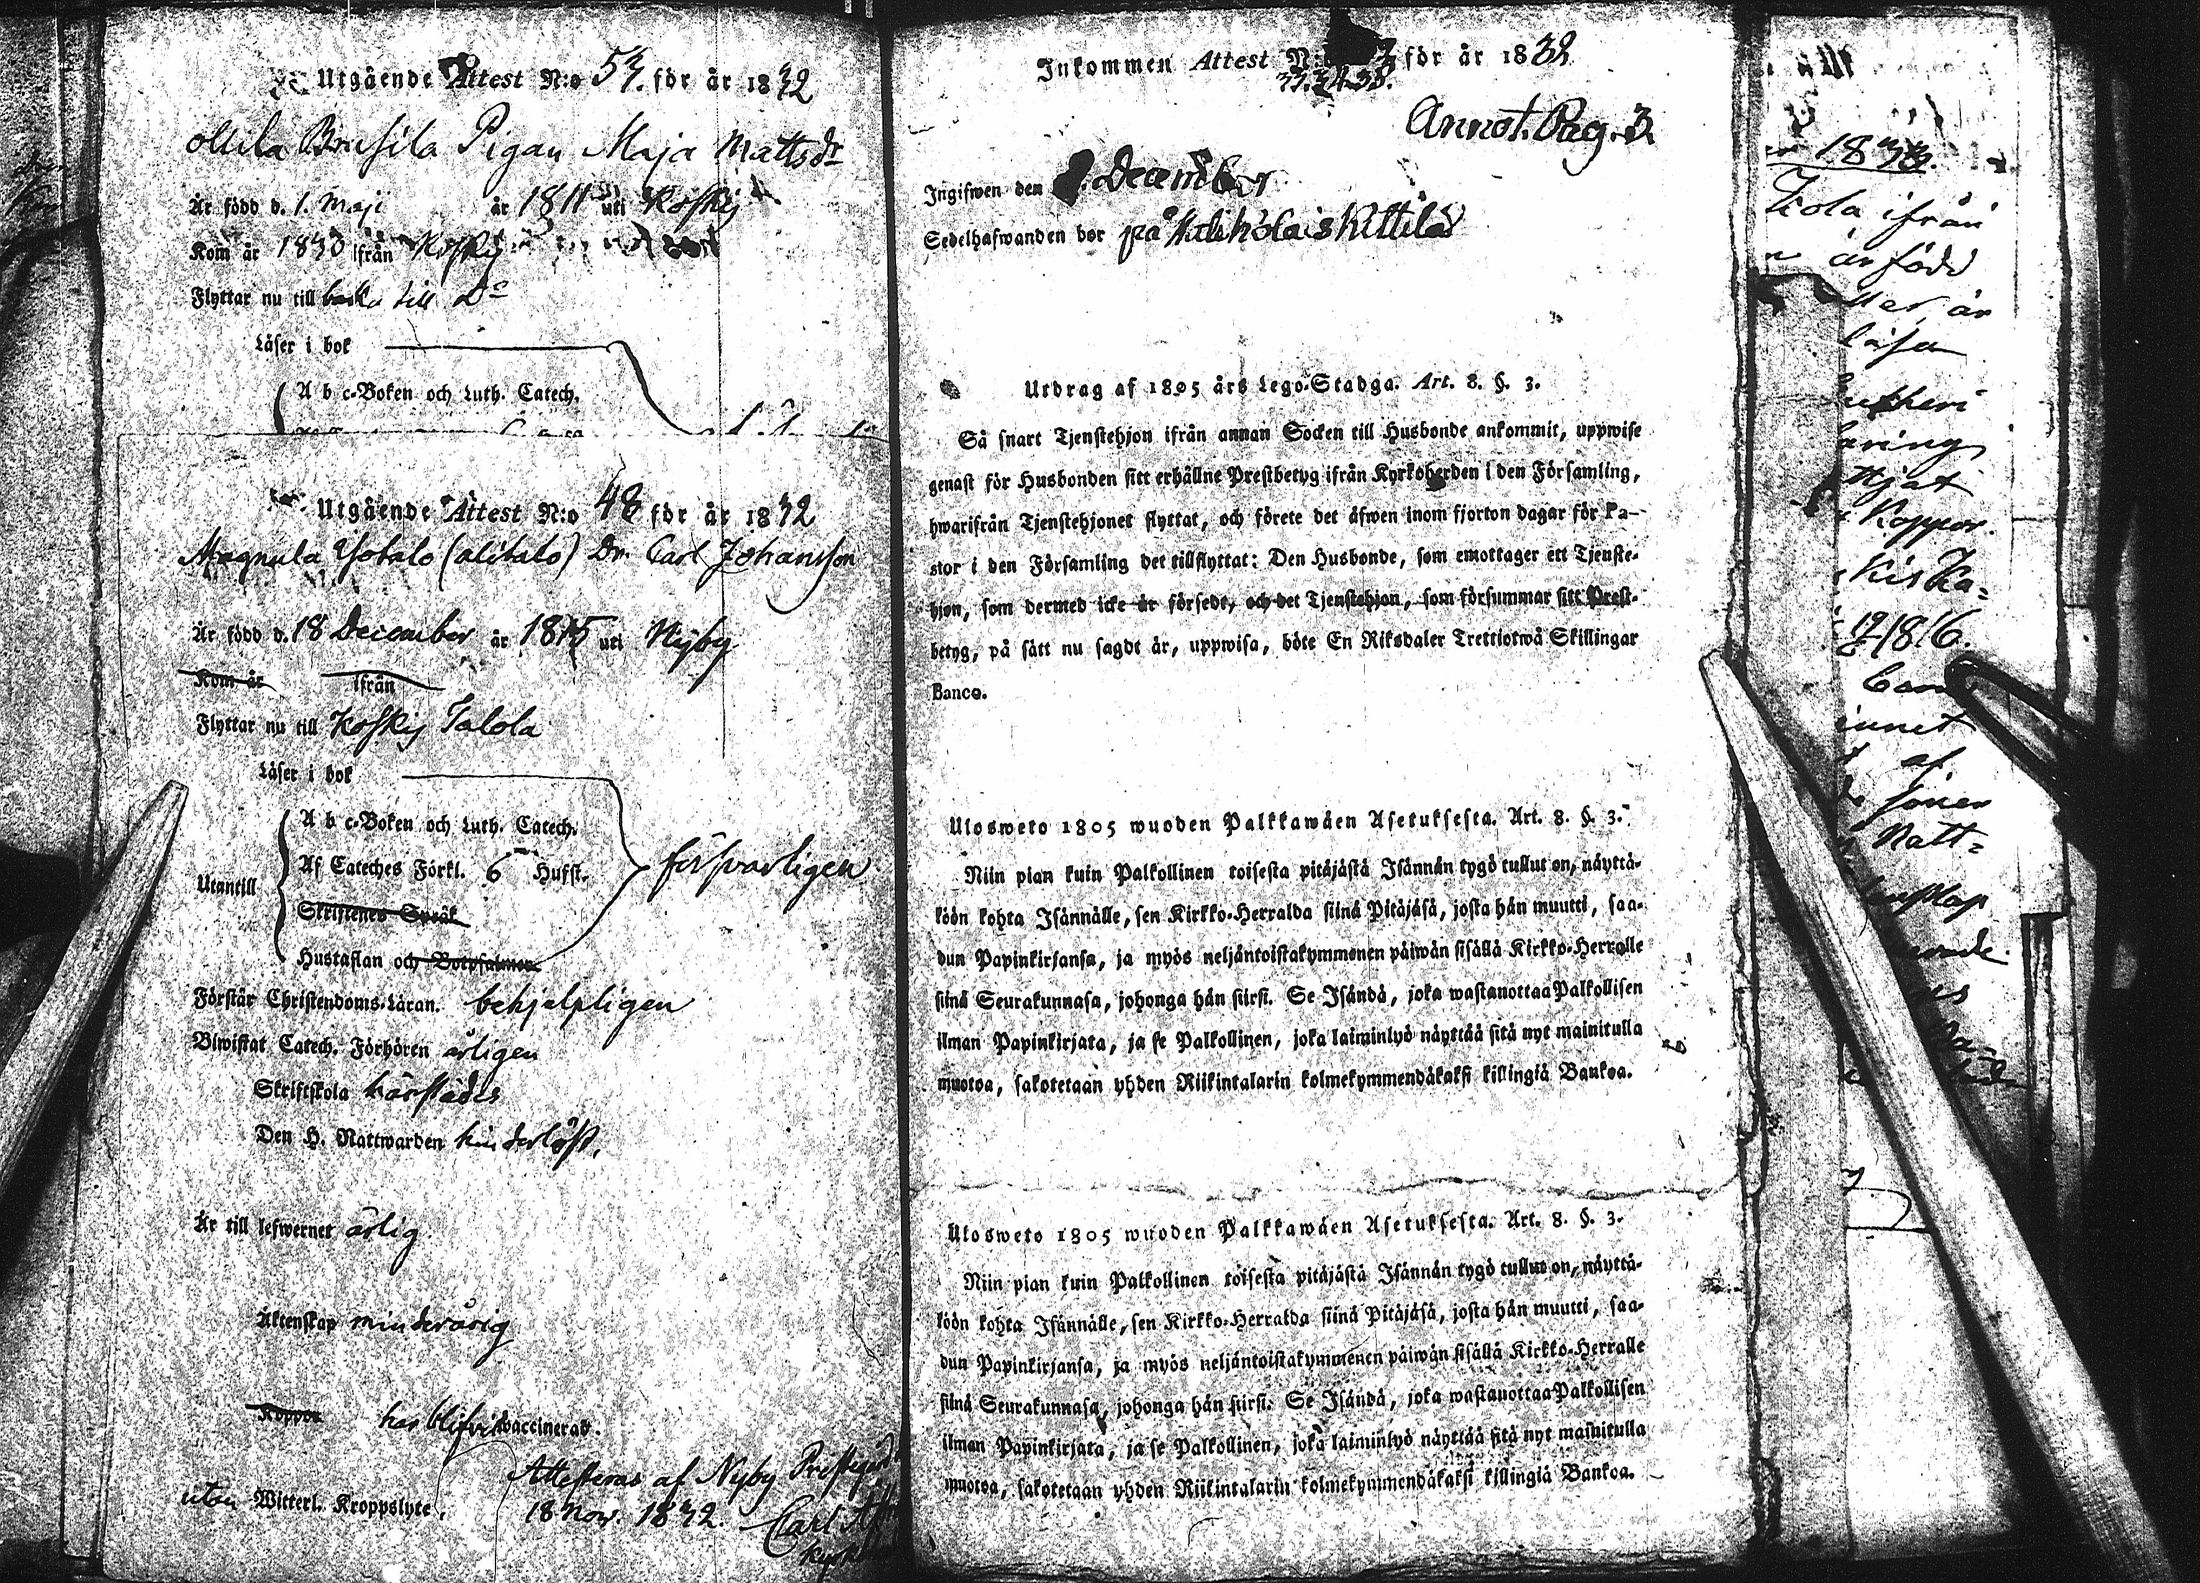 Utgående Attest N:o 53. för år 1832
Pigan Maja Mattsdr
Är född d. 1. Maji år 1811 uti Koskij
Kom år 1830 ifrån Koskij
Flyttar nu till baka till Do
Läser i bok
A b c-Boken och Luth. Catech.
Utgående Attest N:o 48 för år 1832
Magnula Yötalo (alitalo) Dr. Carl Johansson
Är född d. 18 December år 1815 uti Nyby
Kom år ifrån
Flyttar nu till Koskij Talola
Läser i bok
A b c-Boken och Luth. Catech.
Utantill Af Cateches Förkl. 6 Hufst. försvarligen
Skriftenes Språk
Hustaflan och Botpsalmer
Förstår Christendoms-Läran. behjelpligen
Biwistat Catech. Förhören årligen
Skriftskola härstädes
Den H. Nattwarden hinderlöst.
Är till lefwernet ärlig
Äktenskap minderårig
Koppor har blifvit vaccinerad.
utan Witterl. Kroppslyte.
Attesteras af Nyby Prestegård
18 Nov. 1832. Carl
Inkommen Attest N:o för år 1832
33.34.35.
Annot. Pag. 3.
Ingifwen den December
Sedelhafwanden bor på
Utdrag af 1805 års Lego-Stadga. Art. 8. §. 3.
Så snart Tjenstehjon ifrån annan Socken till Husbonde ankommit, uppwise
genast för Husbonden sitt erhållne Prestbetyg ifrån Kyrkoherden i den Församling,
hwarifrån Tjenstehjonet flyttat, och förete det äfwen inom fjorton dagar för Pa-
stor i den Församling det tillflyttat: Den Husbonde, som emottager ett Tjenste-
hjon, som dermed icke är försedt, och det Tjenstehjon, som försummar sitt Prest-
betyg, på sätt nu sagdt är, uppwisa, böte En Riksdaler Trettiotwå Skillingar
Banco.
Ulosweto 1805 wuoden Palkkawäen Asetuksesta. Art. 8. §. 3.
Niin pian kuin Palkollinen toisesta pitäjästä Isännän tygö tullut on, näyttä-
köön kohta Isännälle, sen Kirkko-Herralda siinä Pitäjäsä, josta hän muutti, saa-
dun Papinkirjansa, ja myös neljäntoistakymmenen päiwän sisällä Kirkko-Herralle
siinä Seurakunnasa, johonga hän siirsi. Se Isändä, joka wastanottaa Palkollisen
ilman Papinkirjata, ja se Palkollinen, joka laiminlyö näyttää sitä nyt mainitulla
muotoa, sakotetaan yhden Riikintalarin kolmekymmendäkaksi killingiä Bankoa.
Ulosweto 1805 wuoden Palkkawäen Asetuksesta. Art. 8. §. 3.
Niin pian kuin Palkollinen toisesta pitäjästä Isännän tygö tullut on, näyttä-
köön kohta Isännälle, sen Kirkko-Herralda siinä Pitäjäsä, josta hän muutti, saa-
dun Papinkirjansa, ja myös neljäntoistakymmenen päiwän sisällä Kirkko-Herralle
siinä Seurakunnasa, johonga hän siirsi. Se Isändä, joka wastanottaa Palkollisen
ilman Papinkirjata, ja se Palkollinen, joka laiminlyö näyttää sitä nyt mainitulla
muotoa, sakotetaan yhden Riikintalarin kolmekymmendäkaksi killingiä Bankoa.
1833.
ifrån
är född
är
läsa
Koppor
1816.
af
Natt-